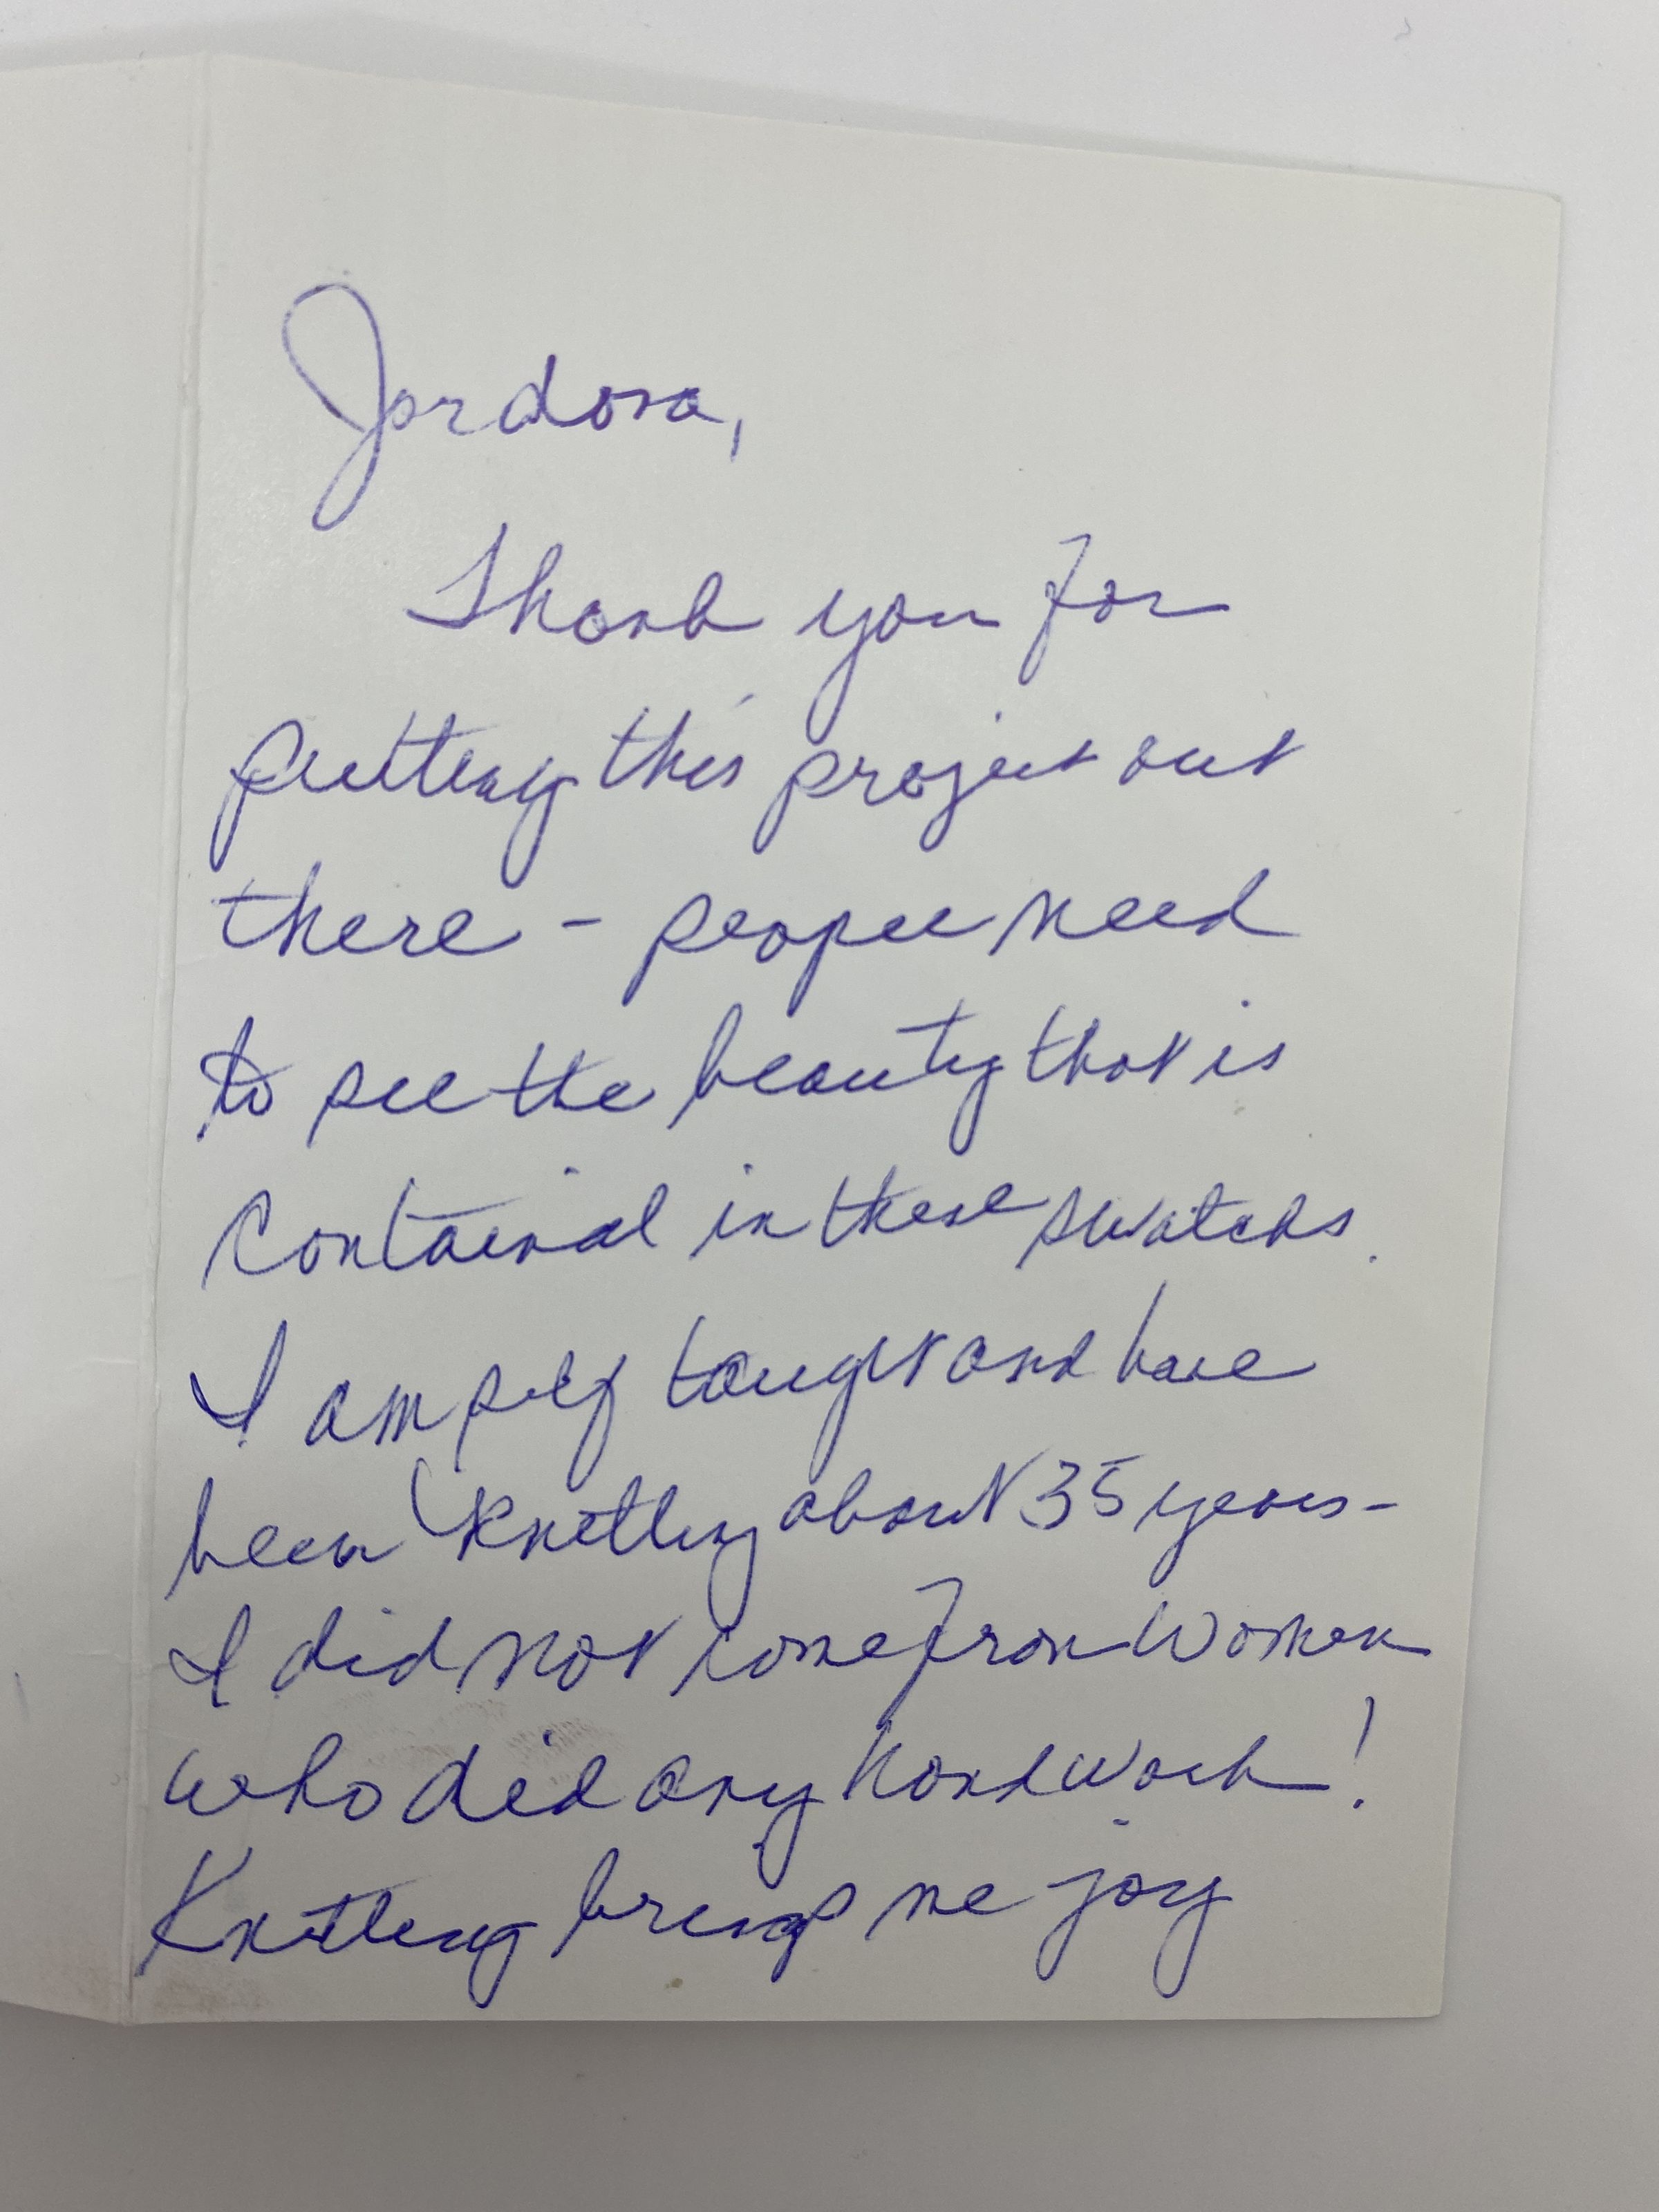 Jordana,
Thank you for
putting this project out
there - people need
to see the beauty that is
contained in these swatches.
I am self taught and have
been knitting about 35 years -
I did not come from women
who did any handwork!
Knitting brings me joy